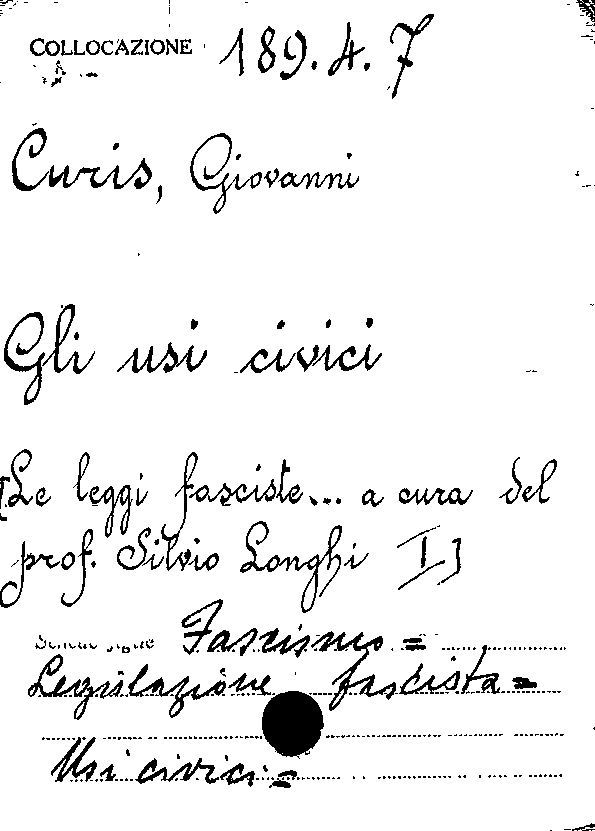 COLLOCAZIONE 189.4.7
Curis, Giovanni
Gli usi civici
[Le leggi fasciste... a cura del
prof. Silvio Longhi I]
Fascismo =
Legislazione fascista =
Usi civici =